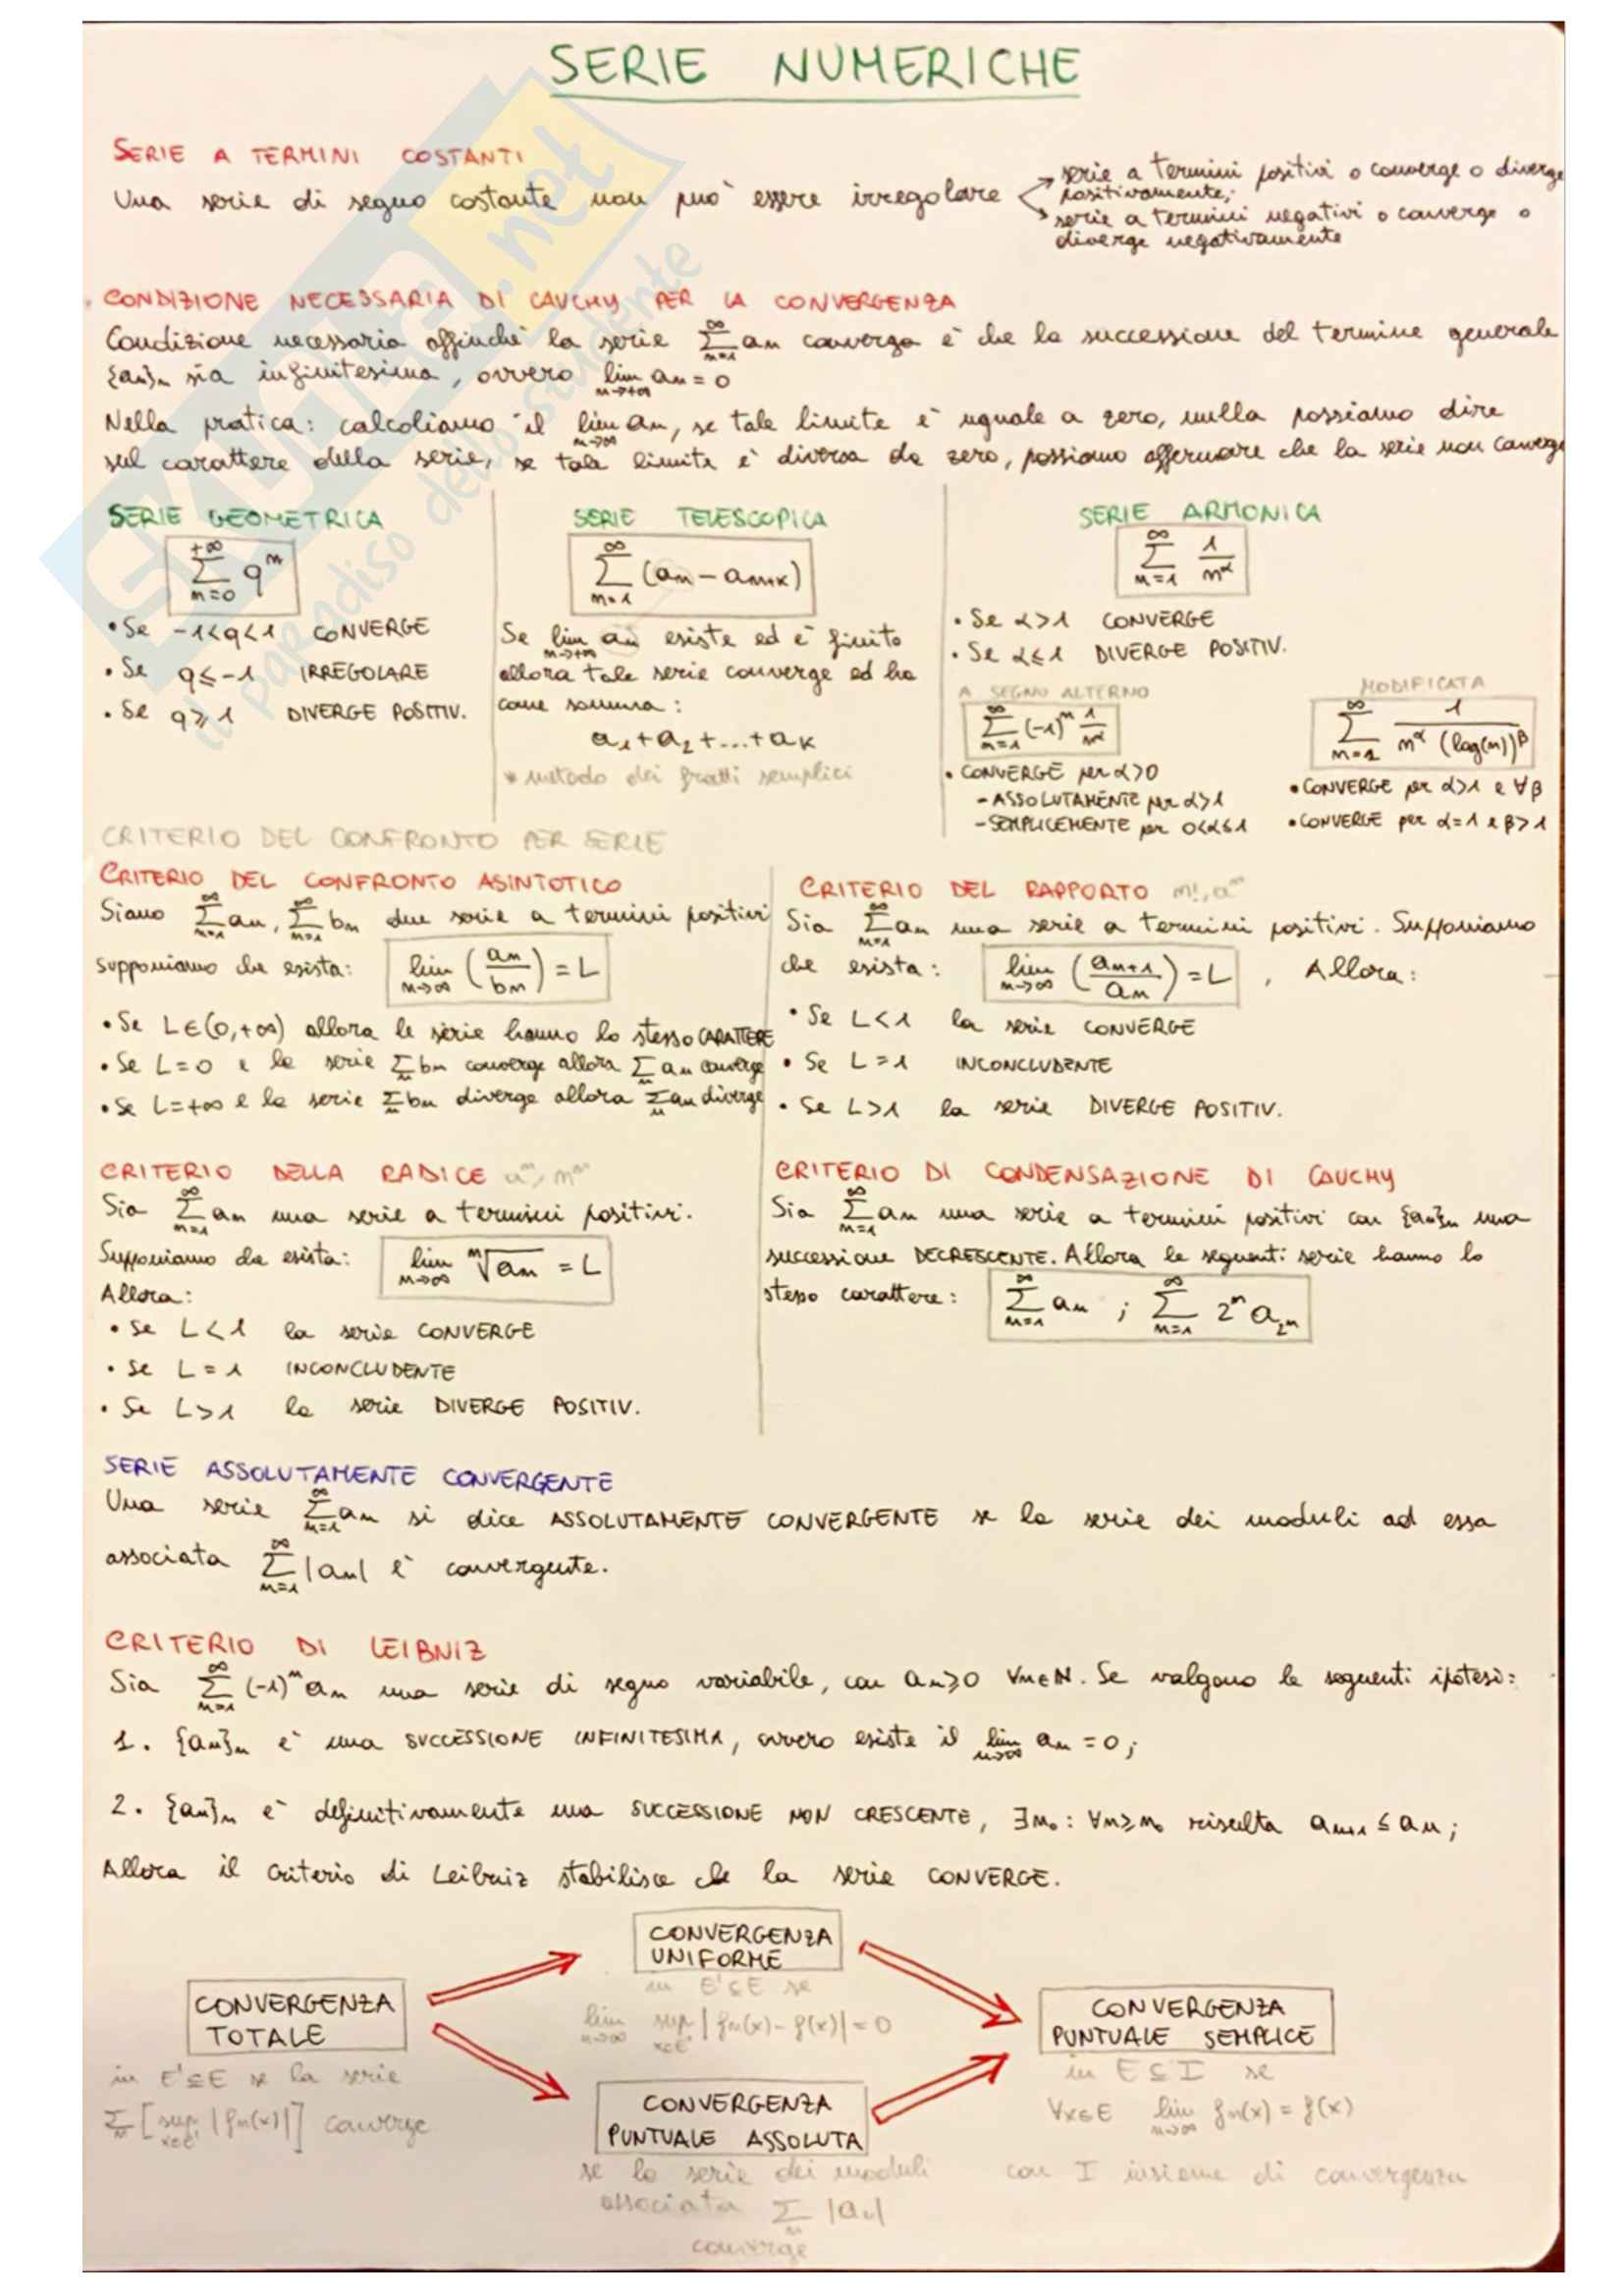 SERIE NUMERICHE
SERIE A TERMINI COSTANTI
Una serie di segno costante non può essere irregolare
serie a termini positivi o converge o diverge
positivamente;
serie a termini negativi o converge o
diverge negativamente
CONDIZIONE NECESSARIA DI CAUCHY PER LA CONVERGENZA
Condizione necessaria affinché la serie ∑_{n=1}^{∞} an converga è che la successione del termine generale
{an}n sia infinitesima, ovvero lim_{n→+∞} an = 0
Nella pratica: calcoliamo il lim_{n→∞} an, se tale limite è uguale a zero, nulla possiamo dire
sul carattere della serie, se tale limite è diverso da zero, possiamo affermare che la serie non converge
SERIE GEOMETRICA
∑_{n=0}^{+∞} q^n
• Se -1<q<1 CONVERGE
• Se q≤-1 IRREGOLARE
• Se q≥1 DIVERGE POSITIV.
SERIE TELESCOPICA
∑_{n=1}^{∞} (an - an+k)
Se lim_{n→+∞} an esiste ed è finito
allora tale serie converge ed ha
come somma:
a1+a2+...+aK
* metodo dei fratti semplici
SERIE ARMONICA
∑_{n=1}^{∞} 1/n^α
• Se α>1 CONVERGE
• Se α≤1 DIVERGE POSITIV.
A SEGNO ALTERNO
∑_{n=1}^{∞} (-1)^n 1/n^α
• CONVERGE per α>0
- ASSOLUTAMENTE per α>1
- SEMPLICEMENTE per 0<α≤1
MODIFICATA
∑_{n=2}^{∞} 1/(n^α (log(n))^β)
• CONVERGE per α>1 e ∀β
• CONVERGE per α=1 e β>1
CRITERIO DEL CONFRONTO PER SERIE
CRITERIO DEL CONFRONTO ASINTOTICO
Siano ∑_{n=1}^{∞} an, ∑_{n=1}^{∞} bn due serie a termini positivi
supponiamo che esista: lim_{n→∞} (an/bn) = L
• Se L∈(0,+∞) allora le serie hanno lo stesso CARATTERE
• Se L=0 e la serie ∑_n bn converge allora ∑_n an converge
• Se L=+∞ e la serie ∑_n bn diverge allora ∑_n an diverge
CRITERIO DEL RAPPORTO n!, a^n
Sia ∑_{n=1}^{∞} an una serie a termini positivi. Supponiamo
che esista: lim_{n→∞} (an+1/an) = L , Allora:
• Se L<1 la serie CONVERGE
• Se L=1 INCONCLUDENTE
• Se L>1 la serie DIVERGE POSITIV.
CRITERIO DELLA RADICE a^n, n^n
Sia ∑_{n=1}^{∞} an una serie a termini positivi.
Supponiamo che esista: lim_{n→∞} ⁿ√an = L
Allora:
• Se L<1 la serie CONVERGE
• Se L=1 INCONCLUDENTE
• Se L>1 la serie DIVERGE POSITIV.
CRITERIO DI CONDENSAZIONE DI CAUCHY
Sia ∑_{n=1}^{∞} an una serie a termini positivi con {an}n una
successione DECRESCENTE. Allora le seguenti serie hanno lo
stesso carattere: ∑_{n=1}^{∞} an ; ∑_{n=1}^{∞} 2^n a_{2^n}
SERIE ASSOLUTAMENTE CONVERGENTE
Una serie ∑_{n=1}^{∞} an si dice ASSOLUTAMENTE CONVERGENTE se la serie dei moduli ad essa
associata ∑_{n=1}^{∞} |an| è convergente.
CRITERIO DI LEIBNIZ
Sia ∑_{n=1}^{∞} (-1)^n an una serie di segno variabile, con an≥0 ∀n∈N. Se valgono le seguenti ipotesi:
1. {an}n è una SUCCESSIONE INFINITESIMA, ovvero esiste il lim_{n→∞} an = 0;
2. {an}n è definitivamente una SUCCESSIONE NON CRESCENTE, ∃n0: ∀n≥n0 risulta an+1 ≤ an;
Allora il criterio di Leibniz stabilisce che la serie CONVERGE.
CONVERGENZA
TOTALE
in E'⊆E se la serie
∑_n [sup_{x∈E'} |fn(x)|] converge
CONVERGENZA
UNIFORME
in E'⊆E se
lim_{n→∞} sup_{x∈E'} |fn(x)-f(x)| = 0
CONVERGENZA
PUNTUALE ASSOLUTA
se la serie dei moduli
associata ∑_n |an|
converge
CONVERGENZA
PUNTUALE SEMPLICE
in E⊆I se
∀x∈E lim_{n→∞} fn(x) = f(x)
con I insieme di convergenza
SKUOLA.net
il paradiso dello studente